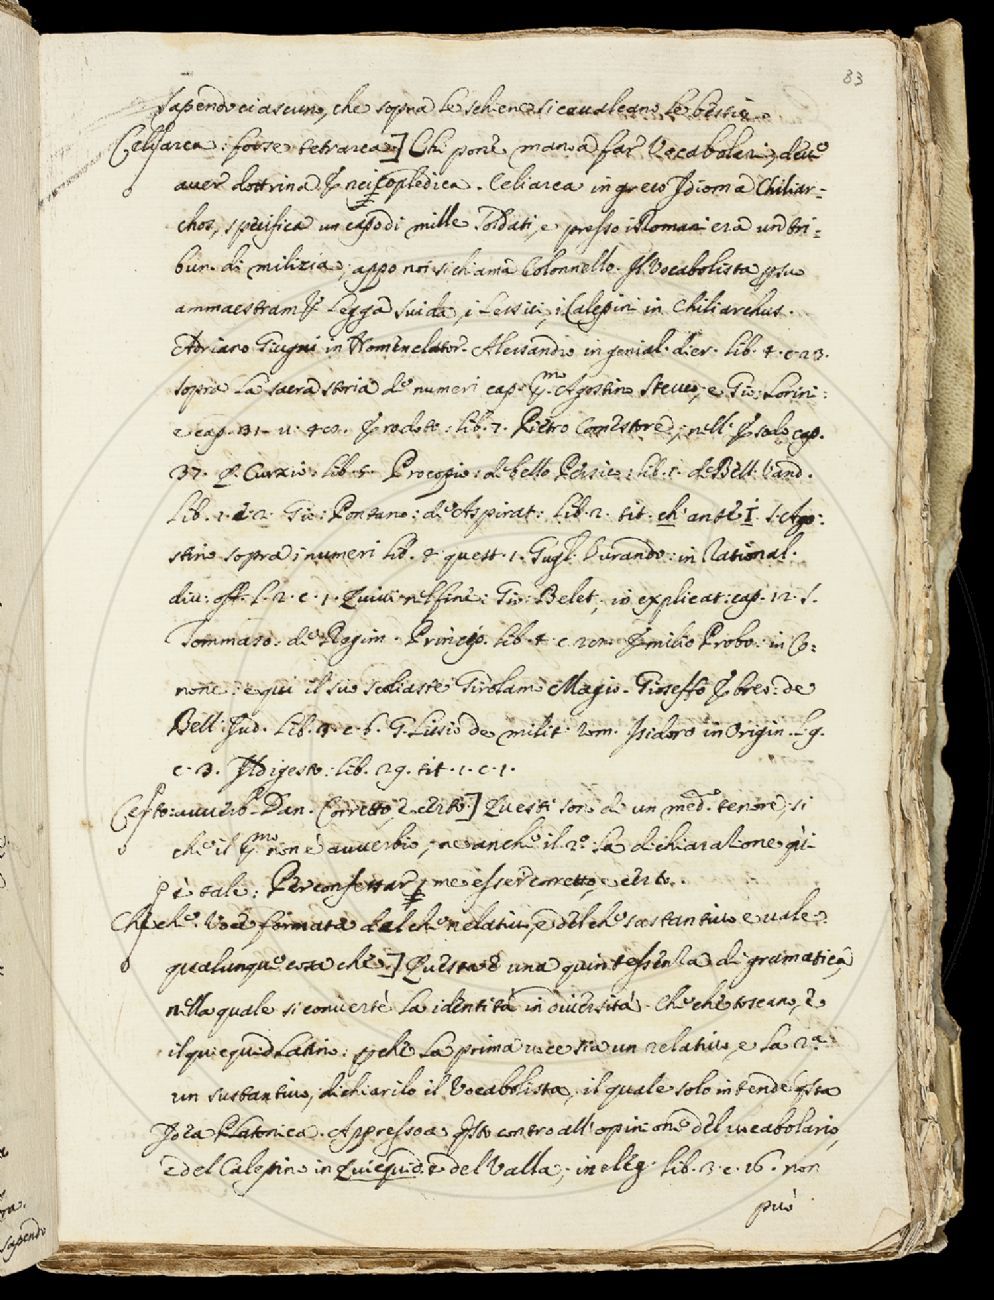 83
sapendo ciascuno, che sopra le schiene si caualcano le bestie.
Celiarca: forse tetrarca] Chi pone mano a far Vocabolari, deue
auer dottrina Enciclopledica. Celiarca in greco Idioma Chiliar-
chos, specifica un capo di mille soldati, e presso i Romani era un tri-
bun di milizia; appo noi si chiama Colonnello. Il Vocabolista
ammaestram Legga Suida, i Lessici, i Calepini in Chiliarchus.
Adriano Giugni in Nomenclator. Alessandro in genial. dier. lib. 4. c. 23.
sopra la sacra storia de numeri cap. Agostino Steuco, e Gio: Lorini:
e cap. 31. u: 48. Erodoto: lib. 7. Pietro Comestore; nell' Esodo cap.
37. Q. Curzio: lib. 5. Procopio: de bello Persico: lib. 1. de Bell. Vand.
lib. 1. e 2. Gio: Pontano: de Aspirat: lib. 2. tit. ch' ante I. S. Ago-
stino sopra i numeri lib. 4. quest. 1. Gugl. Durando: in Rational.
diu: off. l. 2. c. 1. Quiui nel fine: Gio: Belet, in explicat: cap. 12. S.
Tommaso: de Regim. Princip. lib. 4. c. Emilio Probo: in Co-
none: e qui il suo scoliaste Girolamo Magio. Gioseffo Ebreo: de
Bell. Jud. lib. 3. c. 6. G. Lissio de milit. rom. Isidoro in Origin. l. 9.
c. 3. Il digesto: lib. 29. tit. 1. c. 1.
Certo: auuerb. Dan. Corretto, e certo] Questi son di un med.o tenore; si
che il non è auuerbio, ne anche il 2.o La dichiarazione
è tale: Per confettar me esser corretto, e certo.
Che che. Voce formata dal che relatiuo, e del che sustantiuo e uale
qualunque cosa che.] Questa è una quintessenza di gramatica,
nella quale si conuerte la identità in diuersità. Che che toscano, è
il quicquid Latino: perche la prima uoce sia un relatiuo, e la 2.a
un sustantiuo, dichiarilo il Vocabolista, il quale solo intende questa
Idea Platonica. Appresso a questo contro all' opinione del uocabolario,
e del Calepino in Quicquid e del Valla, in eleg. lib. 3. c. 16. non
può
sapendo